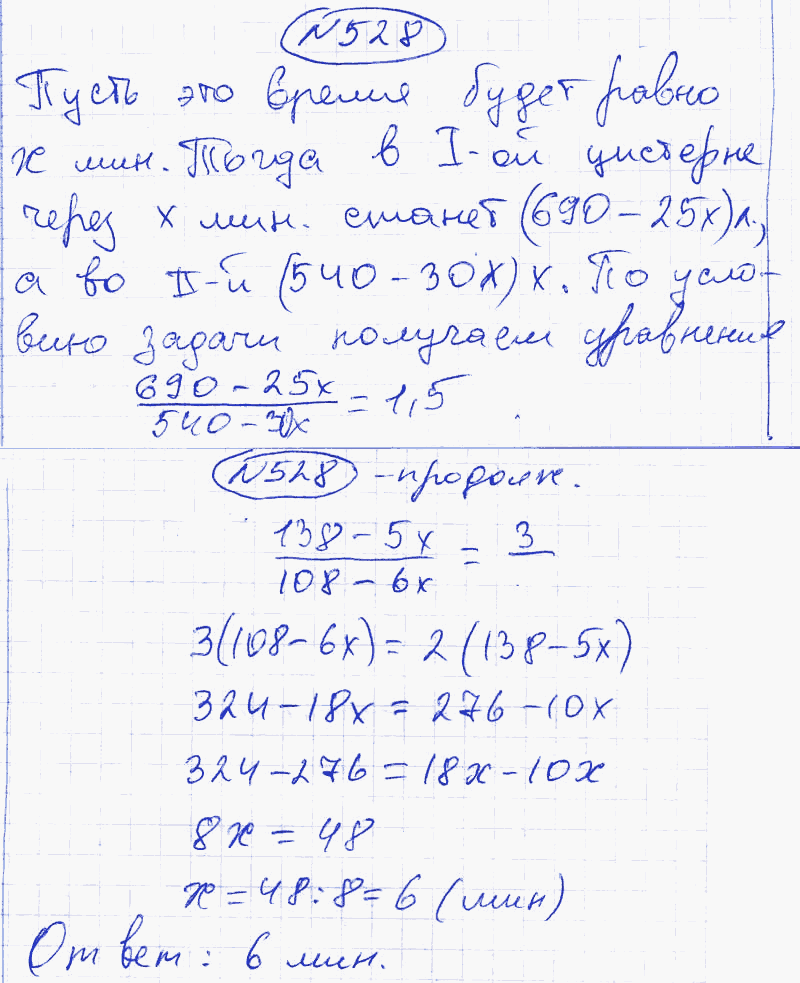 №528
Пусть это время будет равно
x мин. Тогда в I-ой цистерне
через x мин. станет (690-25x)л,
а во II-й (540-30x)x. По усло-
вию задачи получаем уравнение
690-25x
540-30x = 1,5
№528 -продолж.
138-5x = 3
108-6x
3(108-6x)=2(138-5x)
324-18x=276-10x
324-276=18x-10x
8x=48
x=48:8=6 (мин)
Ответ: 6 мин.